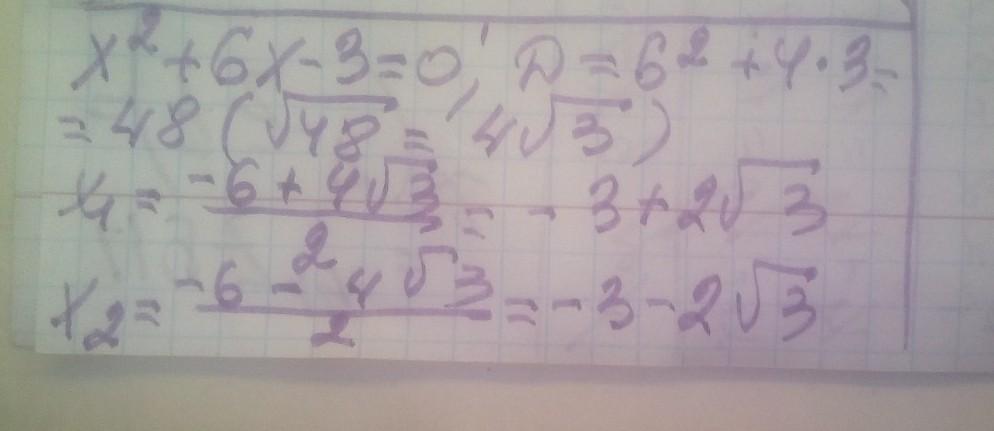 x² + 6x - 3 = 0, D = 6² + 4·3 =
= 48 (√48 = 4√3)
x₁ = (-6 + 4√3)/2 = -3 + 2√3
x₂ = (-6 - 4√3)/2 = -3 - 2√3